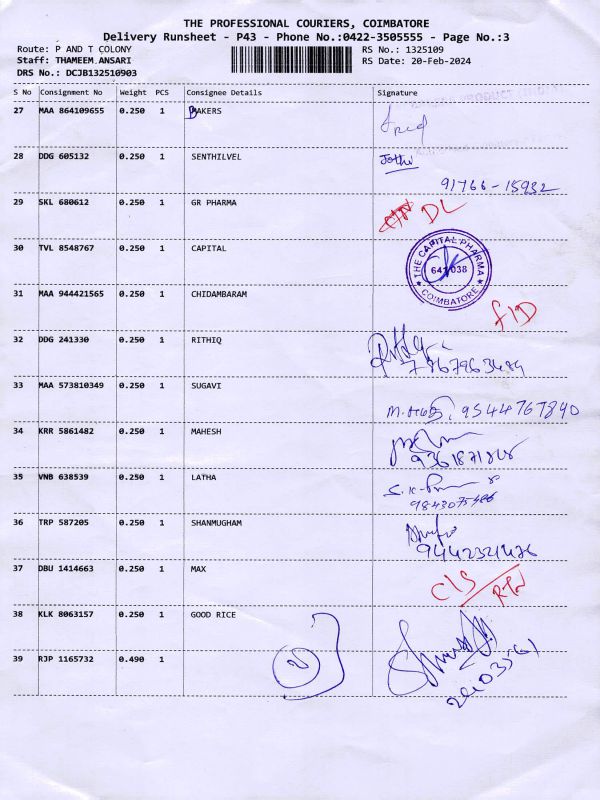 THE PROFESSIONAL COURIERS, COIMBATORE
Delivery Runsheet - P43 - Phone No.:0422-3505555 - Page No.:3
Route: P AND T COLONY RS No.: 1325109
Staff: THAMEEM.ANSARI RS Date: 20-Feb-2024
DRS No.: DCJB132510903
S No Consignment No Weight PCS Consignee Details Signature
27 MAA 864109655 0.250 1 BAKERS
28 DDG 605132 0.250 1 SENTHILVEL Jothi
91766-15932
29 SKL 680612 0.250 1 GR PHARMA DL
30 TVL 8548767 0.250 1 CAPITAL
THE CAPITAL PHARMA
641 038
COIMBATORE
31 MAA 944421565 0.250 1 CHIDAMBARAM
32 DDG 241330 0.250 1 RITHIQ
33 MAA 573810349 0.250 1 SUGAVI
9544767840
34 KRR 5861482 0.250 1 MAHESH
35 VNB 638539 0.250 1 LATHA
36 TRP 587205 0.250 1 SHANMUGHAM
37 DBU 1414663 0.250 1 MAX C/S
38 KLK 8063157 0.250 1 GOOD RICE
39 RJP 1165732 0.490 1